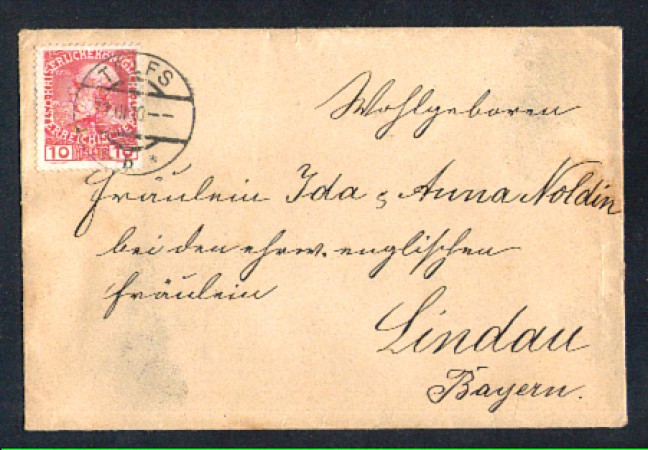 KAISERLICHE KÖNIGLICHE
ÖSTERREICHISCHE
10 HELLER 10
Wohlgeboren
Fräulein Ida & Anna Noldin
bei den ehrw. englischen
Fräulein
Lindau
Bayern.